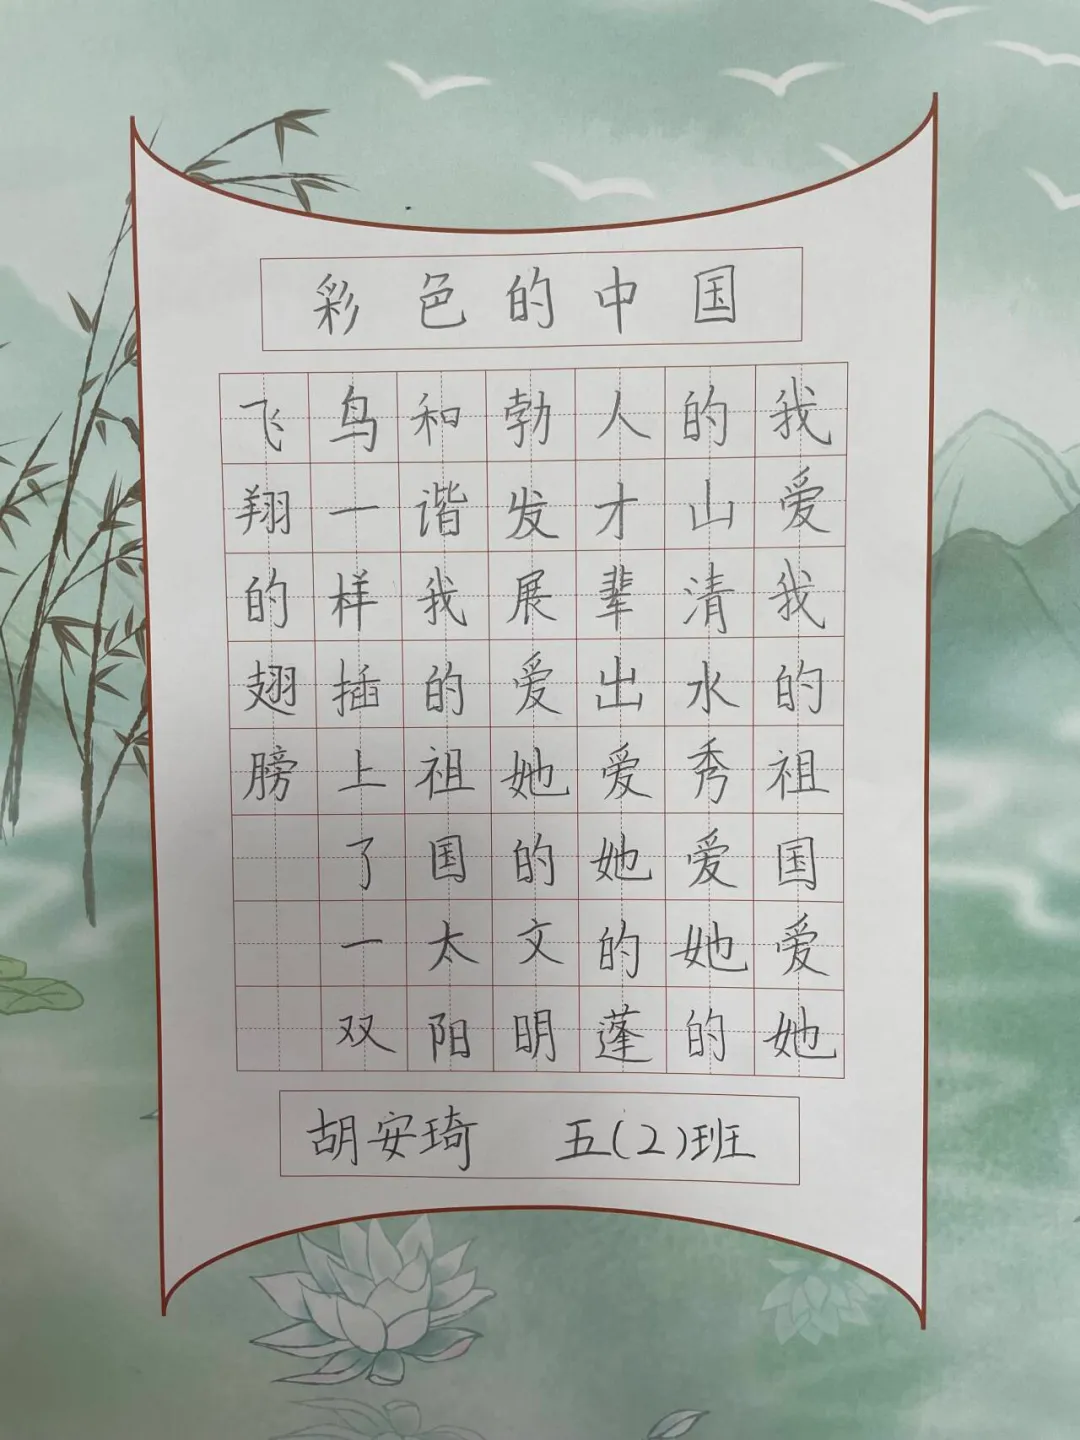 彩色的中国
我爱我的祖国爱她
的山清水秀爱她的
人才辈出爱她的蓬
勃发展爱她的文明
和谐我的祖国太阳
鸟一样插上了一双
飞翔的翅膀
胡安琦 五(2)班